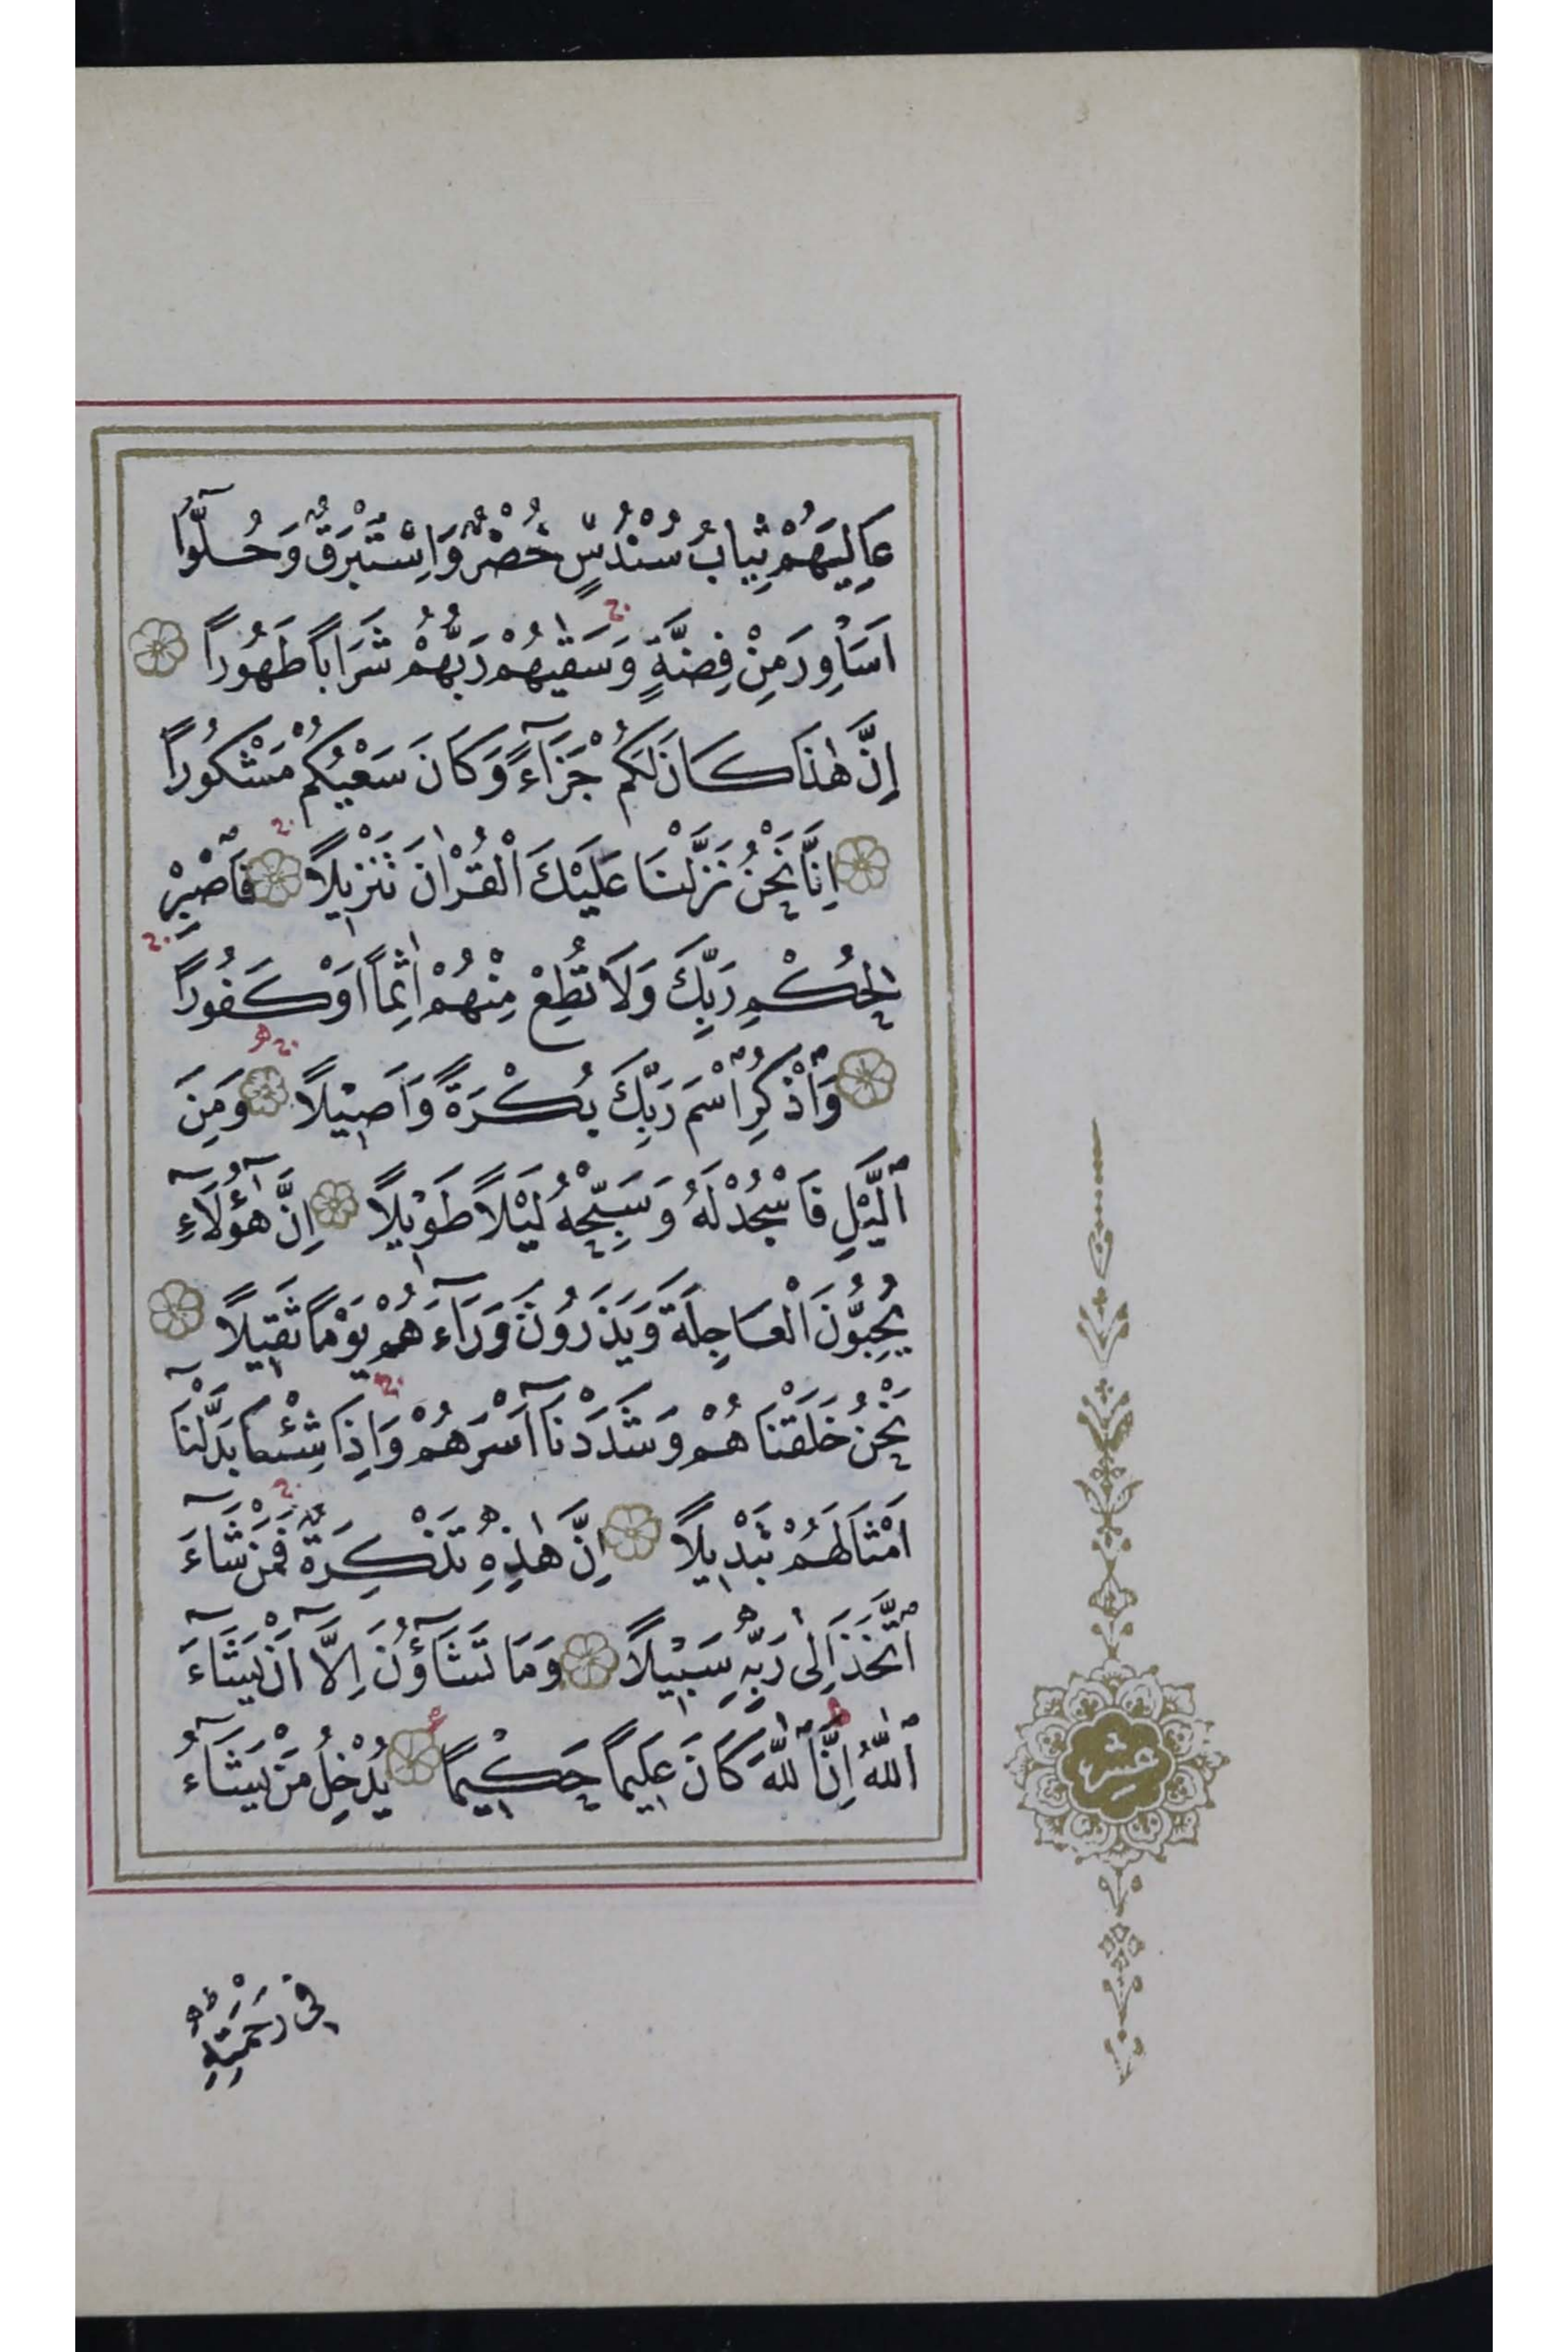 عَالِيَهُمْ ثِيَابُ سُنْدُسٍ خُضْرٌ وَاِسْتَبْرَقٌ وَحُلُّٓوا
اَسَاوِرَ مِنْ فِضَّةٍ وَسَقٰيهُمْ رَبُّهُمْ شَرَاباً طَهُوراً
اِنَّ هٰذَا كَانَ لَكُمْ جَزَٓاءً وَكَانَ سَعْيُكُمْ مَشْكُوراً
اِنَّا نَحْنُ نَزَّلْنَا عَلَيْكَ الْقُرْاٰنَ تَنْزٖيلاً فَاصْبِرْ
لِحُكْمِ رَبِّكَ وَلَا تُطِعْ مِنْهُمْ اٰثِماً اَوْ كَفُوراً
وَاذْكُرِ اسْمَ رَبِّكَ بُكْرَةً وَاَصٖيلاً وَمِنَ
الَّيْلِ فَاسْجُدْ لَهُ وَسَبِّحْهُ لَيْلاً طَوٖيلاً اِنَّ هٰٓؤُلَٓاءِ
يُحِبُّونَ الْعَاجِلَةَ وَيَذَرُونَ وَرَٓاءَهُمْ يَوْماً ثَقٖيلاً
نَحْنُ خَلَقْنَاهُمْ وَشَدَدْنَٓا اَسْرَهُمْ وَاِذَا شِئْنَا بَدَّلْنَٓا
اَمْثَالَهُمْ تَبْدٖيلاً اِنَّ هٰذِهٖ تَذْكِرَةٌ فَمَنْ شَٓاءَ
اتَّخَذَ اِلٰى رَبِّهٖ سَبٖيلاً وَمَا تَشَٓاؤُنَ اِلَّٓا اَنْ يَشَٓاءَ
اللّٰهُ اِنَّ اللّٰهَ كَانَ عَلٖيماً حَكٖيماً يُدْخِلُ مَنْ يَشَٓاءُ
عشر
فٖى رَحْمَتِهٖ